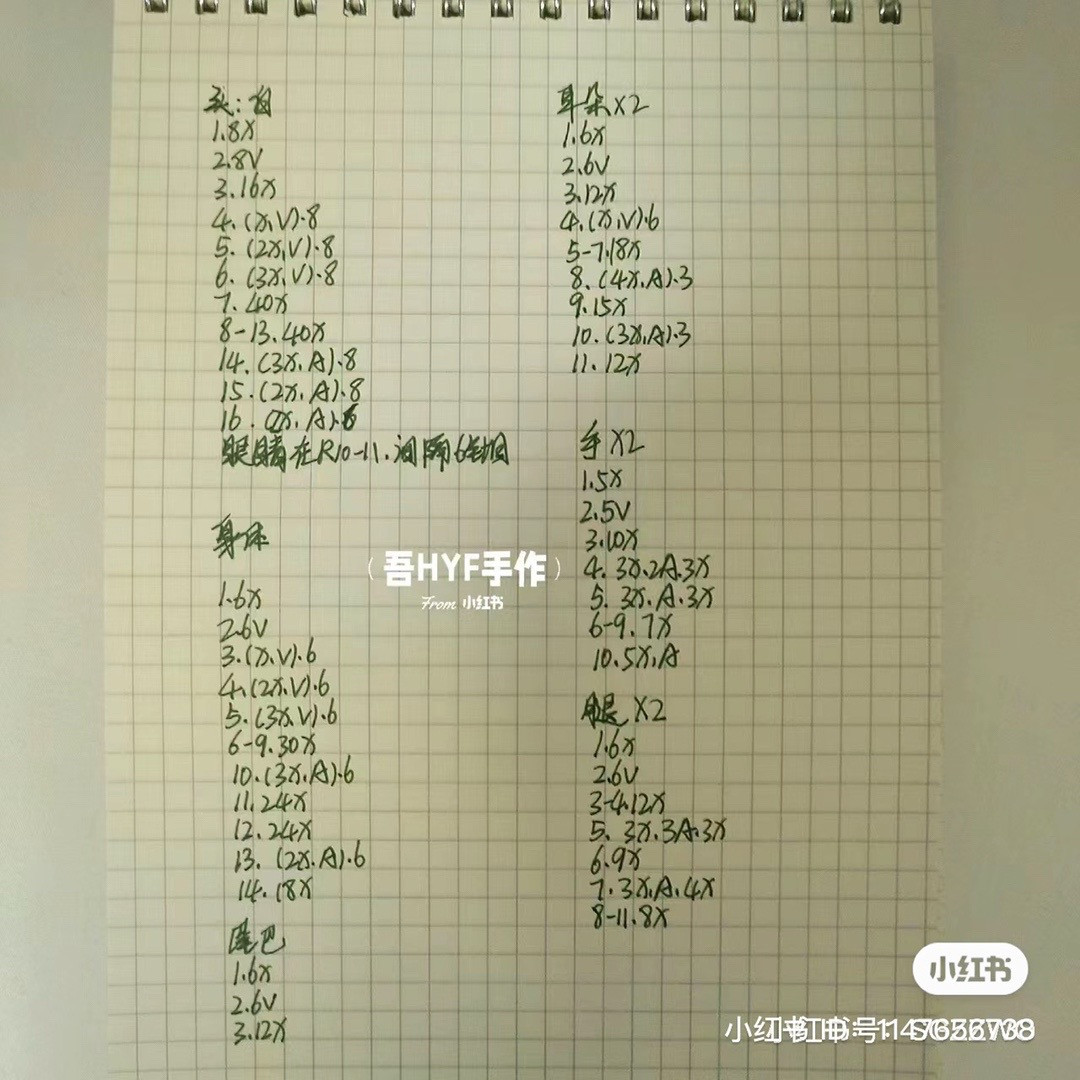 头：白
1.8X
2.8V
3.16X
4.(X,V)·8
5.(2X,V)·8
6.(3X,V)·8
7.40X
8-13.40X
14.(3X.A).8
15.(2X.A).8
16.(X.A).6
眼睛在R10-11.间隔6针目
身体
1.6X
2.6V
3.(X.V).6
4.(2X.V).6
5.(3X.V)·6
6-9.30X
10.(3X.A).6
11.24X
12.24X
13.(2X.A).6
14.18X
尾巴
1.6X
2.6V
3.12X
耳朵X2
1.6X
2.6V
3.12X
4.(X,V)·6
5-7.18X
8.(4X.A).3
9.15X
10.(3X.A).3
11.12X
手X2
1.5X
2.5V
3.10X
4.3X.2A.3X
5.3X.A.3X
6-9.7X
10.5X.A
腿X2
1.6X
2.6V
3-4.12X
5.3X.3A.3X
6.9X
7.3X.A.4X
8-11.8X
（吾HYF手作）
From 小红书
小红书